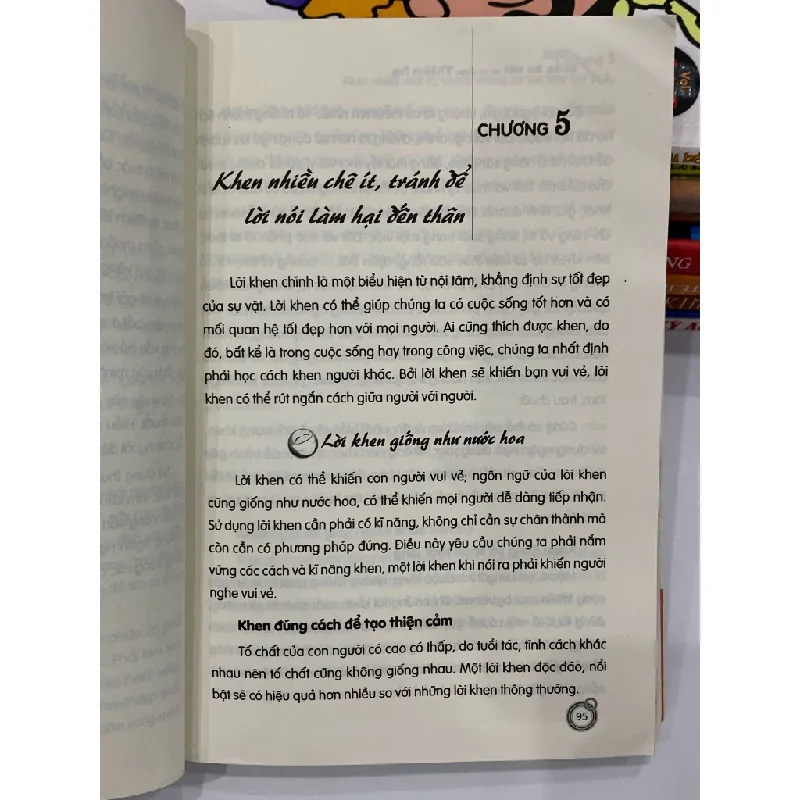 CHƯƠNG 5
Khen nhiều chê ít, tránh để
lời nói làm hại đến thân
Lời khen chính là một biểu hiện từ nội tâm, khẳng định sự tốt đẹp
của sự vật. Lời khen có thể giúp chúng ta có cuộc sống tốt hơn và có
mối quan hệ tốt đẹp hơn với mọi người. Ai cũng thích được khen, do
đó, bất kể là trong cuộc sống hay trong công việc, chúng ta nhất định
phải học cách khen người khác. Bởi lời khen sẽ khiến bạn vui vẻ, lời
khen có thể rút ngắn cách giữa người với người.
Lời khen giống như nước hoa
Lời khen có thể khiến con người vui vẻ, ngôn ngữ của lời khen
cũng giống như nước hoa, có thể khiến mọi người dễ dàng tiếp nhận.
Sử dụng lời khen cần phải có kĩ năng, không chỉ cần sự chân thành mà
còn cần có phương pháp đúng. Điều này yêu cầu chúng ta phải nắm
vững các cách và kĩ năng khen, một lời khen khi nói ra phải khiến người
nghe vui vẻ.
Khen đúng cách để tạo thiện cảm
Tố chất của con người có cao có thấp, do tuổi tác, tính cách khác
nhau nên tố chất cũng không giống nhau. Một lời khen độc đáo, nổi
bật sẽ có hiệu quả hơn nhiều so với những lời khen thông thường.
95